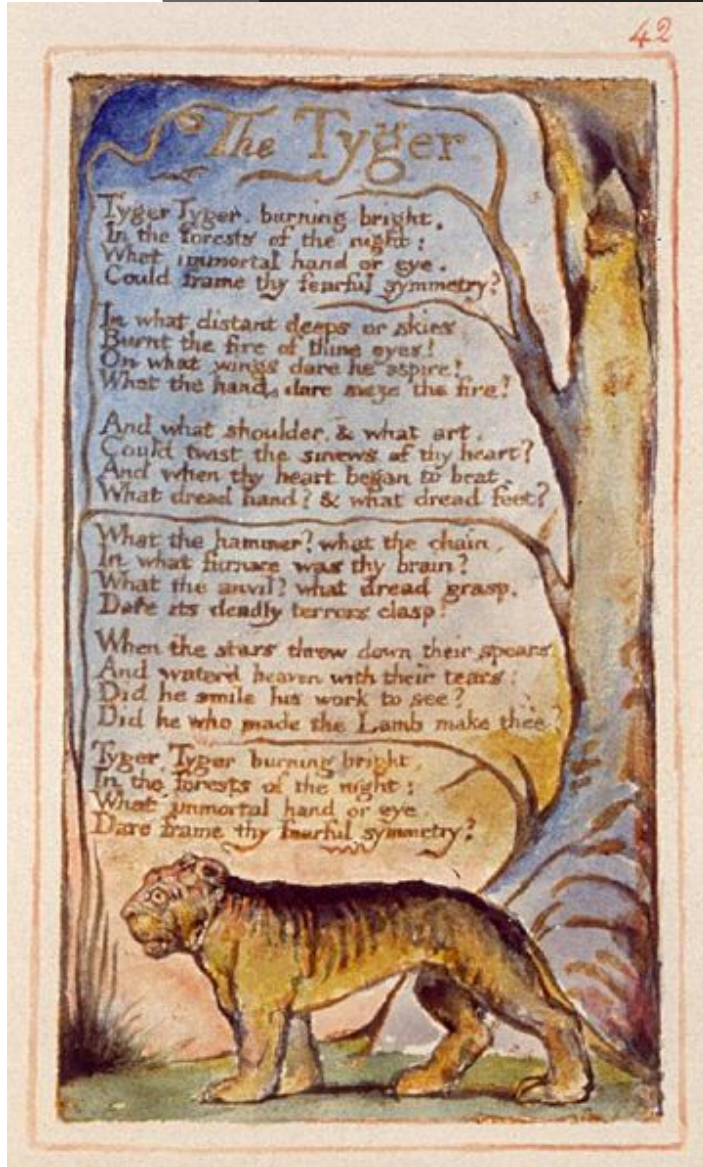 42
The Tyger
Tyger Tyger, burning bright,
In the forests of the night:
What immortal hand or eye,
Could frame thy fearful symmetry?
In what distant deeps or skies
Burnt the fire of thine eyes!
On what wings dare he aspire!
What the hand, dare sieze the fire?
And what shoulder, & what art,
Could twist the sinews of thy heart?
And when thy heart began to beat,
What dread hand? & what dread feet?
What the hammer? what the chain,
In what furnace was thy brain?
What the anvil? what dread grasp,
Dare its deadly terrors clasp!
When the stars threw down their spears
And water'd heaven with their tears:
Did he smile his work to see?
Did he who made the Lamb make thee?
Tyger, Tyger burning bright,
In the forests of the night:
What immortal hand or eye
Dare frame thy fearful symmetry?